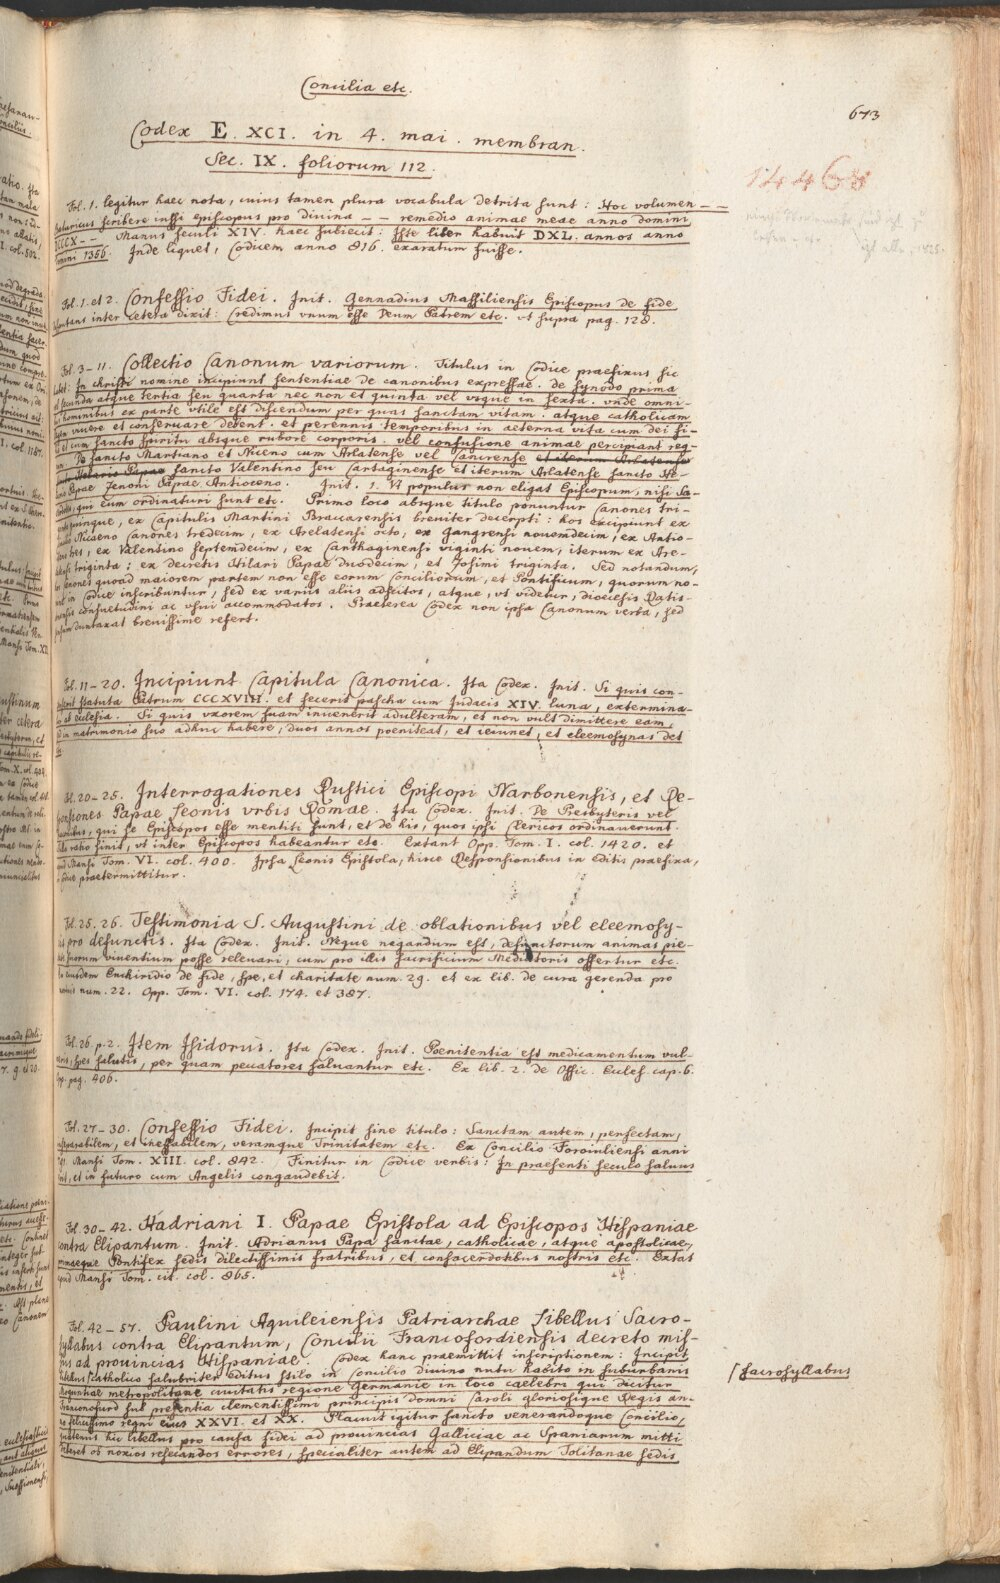 Concilia etc.
673
Codex E. XCI. in 4. mai. membran.
Sec. IX. foliorum 112.
14468
Fol. 1. legitur haec nota, cuius tamen plura vocabula detrita sunt: Hoc volumen --
Baturicus scribere iussi episcopus pro diuina -- remedio animae meae anno domini
DCCCX -- Manus seculi XIV. haec subiecit: Iste liber habuit DXL. annos anno
domini 1356. Inde liquet, Codicem anno 816. exaratum fuisse.
Fol. 1. et 2. Confessio Fidei. Init. Gennadius Massiliensis Episcopus de fide
inter cetera dixit: Credimus vnum esse Deum Patrem etc. vt supra pag. 128.
Fol. 3-11. Collectio Canonum variorum. Titulus in Codice praefixus sic
habet: In christi nomine incipiunt sententiae de canonibus expressae. de synodo prima
vel secunda atque tertia seu quarta nec non et quinta vel vsque in sexta. vnde omni-
bus hominibus ex parte vtile est discendum per quas sanctam vitam. atque catholicam
viuere et conseruare debent. et perennis temporibus in aeterna vita cum dei fi-
lio et cum sancto spiritu absque rubore corporis. vel confusione animae percipiant reg-
num. De sancto Martiano et Niceno cum Arlatense vel Cancrense et iterum Arlatense
sancto Helaris Papae sancto Valentino seu Cartaginense et iterum Arlatense sancto He-
lario Papae Zenoni Papae Antioceno. Init. 1. Vt populus non eligat Episcopum, nisi Sa-
cerdotes, qui eum ordinaturi sunt etc. Primo loco absque titulo ponuntur Canones tri-
ginta quinque, ex Capitulis Martini Bracarensis breuiter decerpti: hos excipiunt ex
Concilio Nicaeno Canones tredecim, ex Arelatensi octo, ex Gangrensi nouemdecim, ex Antio-
cheno tres, ex Valentino septemdecim, ex Carthaginensi viginti nouem, iterum ex Are-
latensi triginta: ex decretis Hilari Papae duodecim, et Zosimi triginta. Sed notandum,
hos Canones quoad maiorem partem non esse eorum Conciliorum, et Pontificum, quorum no-
mine in Codice inscribuntur, sed ex variis aliis adscitos, atque, vt videtur, dioecesis Ratis-
ponensis consuetudini ac vsui accommodatos. Praeterea Codex non ipsa Canonum verba, sed
sensum duntaxat breuissime refert.
Fol. 11-20. Incipiunt Capitula Canonica. Ita Codex. Init. Si quis con-
tempserit statuta Patrum CCCXVIII. et fecerit pascha cum Iudaeis XIV. luna, extermina-
bitur ab ecclesia. Si quis vxorem suam inuenerit adulteram, et non vult dimittere eam,
sed in matrimonio suo adhuc habere, duos annos poeniteat, et ieiunet, et eleemosynas det
etc.
Fol. 20-25. Interrogationes Rustici Episcopi Narbonensis, et Re-
sponsiones Papae Leonis vrbis Romae. Ita Codex. Init. De Presbyteris vel
Diaconibus, qui se Episcopos esse mentiti sunt, et de his, quos ipsi Clericos ordinauerunt.
Nulla ratio sinit, vt inter Episcopos habeantur etc. Extant Opp. Tom. I. col. 1420. et
apud Mansi Tom. VI. col. 400. Ipsa Leonis Epistola, hisce Responsionibus in editis praefixa,
in Codice praetermittitur.
Fol. 25. 26. Testimonia S. Augustini de oblationibus vel eleemosy-
nis pro defunctis. Ita Codex. Init. Neque negandum est, defunctorum animas pie-
tate suorum viuentium posse releuari, cum pro illis sacrificium Mediatoris offertur etc.
Ex eiusdem Enchiridio de fide, spe, et charitate num. 29. et ex lib. de cura gerenda pro
mortuis num. 22. Opp. Tom. VI. col. 174. et 387.
Fol. 26. p. 2. Item Isidorus. Ita Codex. Init. Poenitentia est medicamentum vul-
neris, spes salutis, per quam peccatores saluantur etc. Ex lib. 2. de Offic. Eccles. cap. 6.
Opp. pag. 406.
Fol. 27-30. Confessio Fidei. Incipit sine titulo: Sanctam autem, perfectam,
inseparabilem, et ineffabilem, veramque Trinitatem etc. Ex Concilio Foroiuliensi anni
791. Mansi Tom. XIII. col. 842. Finitur in Codice verbis: In praesenti seculo saluus
fiet, et in futuro cum Angelis congaudebit.
Fol. 30-42. Hadriani I. Papae Epistola ad Episcopos Hispaniae
contra Elipantum. Init. Adrianus Papa sanctae, catholicae, atque apostolicae,
primaeque Pontifex sedis dilectissimis fratribus, et consacerdotibus nostris etc. Extat
apud Mansi Tom. cit. col. 865.
Fol. 42-57. Paulini Aquileiensis Patriarchae Libellus Sacro-
syllabus contra Elipantum, Concilii Francofordiensis decreto mis-
sus ad prouincias Hispaniae. Codex hanc praemittit inscriptionem: Incipit
libellus / catholico salubriter editus stilo in Concilio diuino nutu habito in suburbanis
Moguntiae metropolitane ciuitatis regione Germanie in loco caelebri qui dicitur
Franconofurd sub presentia clementissimi principis domni Caroli gloriosique Regis an-
no felicissimo regni eius XXVI. et XX. Placuit igitur sancto venerandoque Concilio,
quatenus hic libellus pro causa fidei ad prouincias Galliciae ac Spaniarum mitti
deberet ob noxios resecandos errores, specialiter autem ad Elipandum Tolitanae sedis
/ sacrosyllabus